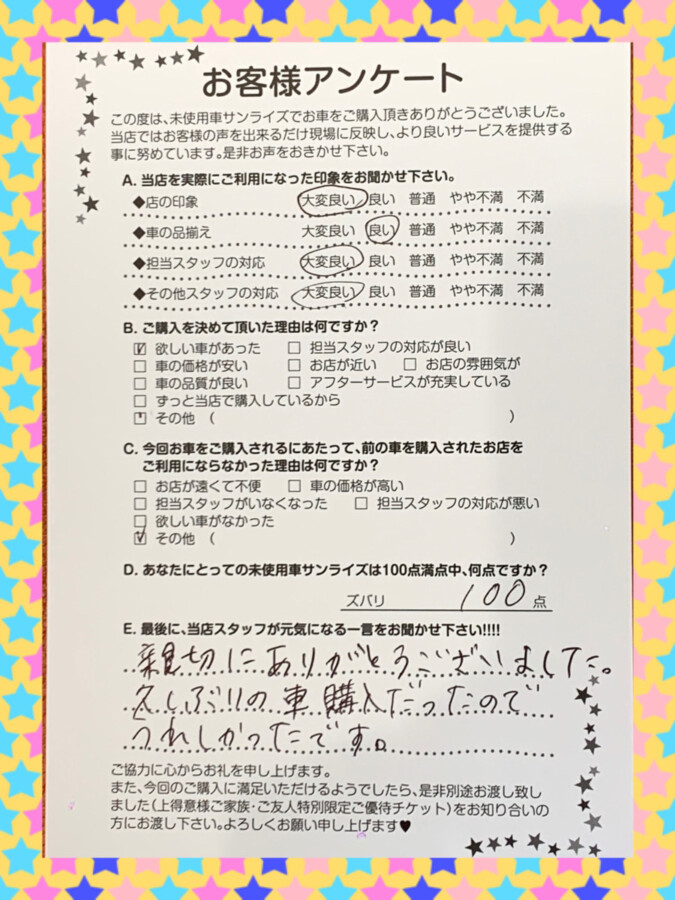 お客様アンケート
この度は、未使用車サンライズでお車をご購入頂きありがとうございました。
当店ではお客様の声を出来るだけ現場に反映し、より良いサービスを提供する
事に努めています。是非お声をおきかせ下さい。
A. 当店を実際にご利用になった印象をお聞かせ下さい。
◆店の印象 大変良い 良い 普通 やや不満 不満
◆車の品揃え 大変良い 良い 普通 やや不満 不満
◆担当スタッフの対応 大変良い 良い 普通 やや不満 不満
◆その他スタッフの対応 大変良い 良い 普通 やや不満 不満
B. ご購入を決めて頂いた理由は何ですか？
☑ 欲しい車があった □ 担当スタッフの対応が良い
□ 車の価格が安い □ お店が近い □ お店の雰囲気が
□ 車の品質が良い □ アフターサービスが充実している
□ ずっと当店で購入しているから
□ その他 ( )
C. 今回お車をご購入されるにあたって、前の車を購入されたお店を
ご利用にならなかった理由は何ですか？
□ お店が遠くて不便 □ 車の価格が高い
□ 担当スタッフがいなくなった □ 担当スタッフの対応が悪い
□ 欲しい車がなかった
☑ その他 ( )
D. あなたにとっての未使用車サンライズは100点満点中、何点ですか？
ズバリ 100 点
E. 最後に、当店スタッフが元気になる一言をお聞かせ下さい!!!!
親切にありがとうございました。
久しぶりの車購入だったので
うれしかったです。
ご協力に心からお礼を申し上げます。
また、今回のご購入に満足いただけるようでしたら、是非別途お渡し致し
ました(上得意様ご家族・ご友人特別限定ご優待チケット)をお知り合いの
方にお渡し下さい。よろしくお願い申し上げます♥